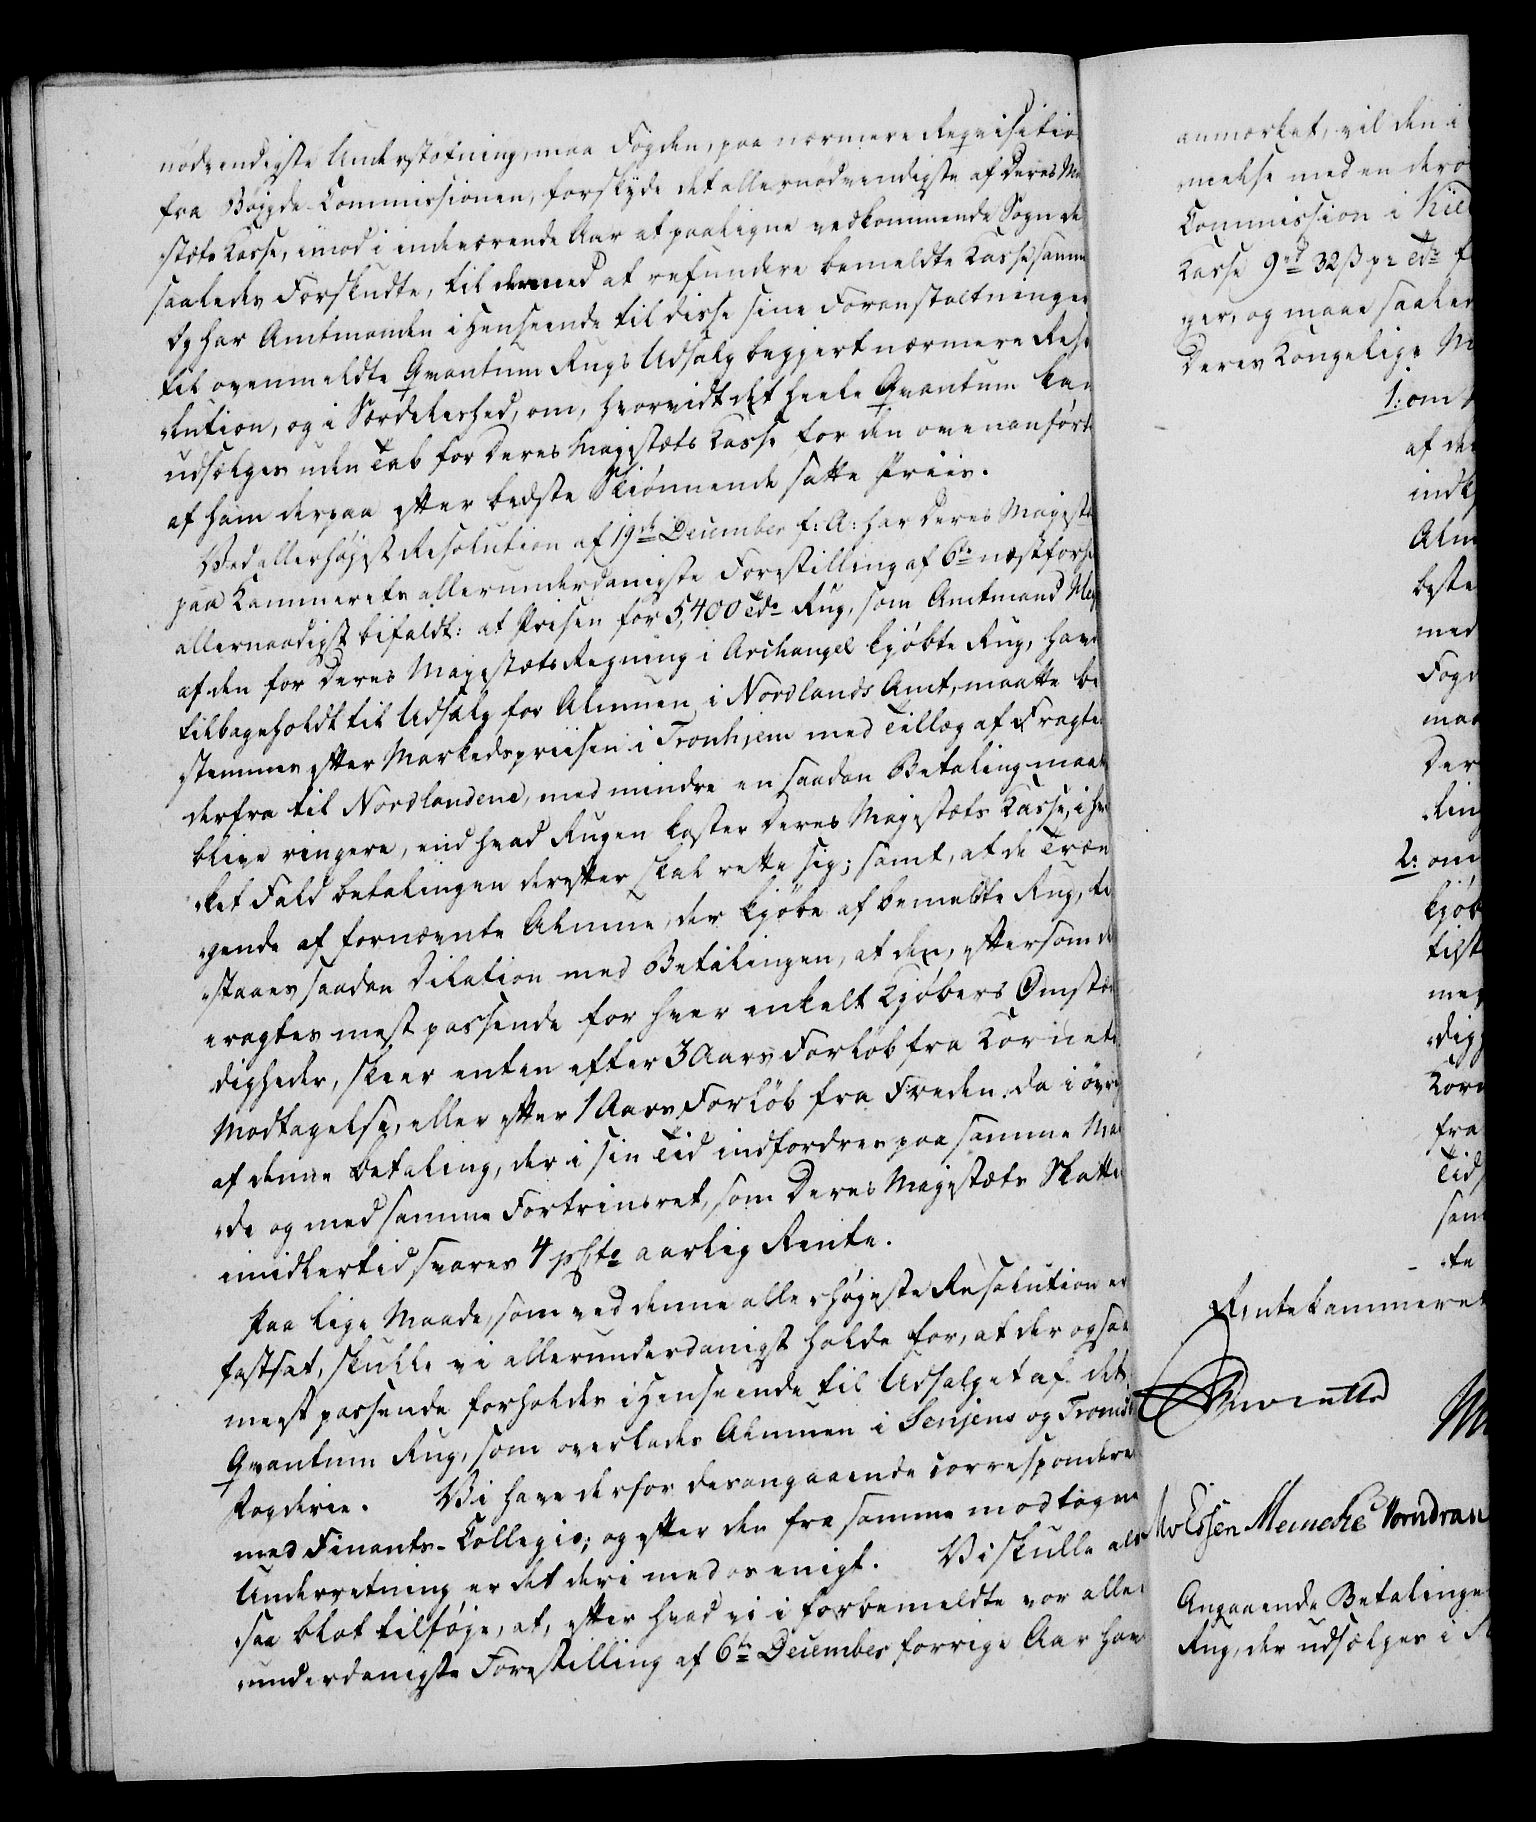 nødvendigste Understøtning, maa Fogden, paa nærmere Reqvisitio
fra Bøigde-Commissionen, forskyde det allernødvendigste af Deres Ma
stæts Kasse, imod i indeværende Aar at paaligne vedkommende Sogn de
saaledes Forskudte, til dermed at refundere bemeldte Kasse samme
Og har Amtmanden i Henseende til disse sine Foranstaltninger
til ovenmeldte Qvantum Rugs Udsalg begjert nærmere Reso
lution, og i Særdeleshed, om, hvorvidt det heele Qvantum kan
udsælges uden Tab for Deres Majestæts Kasse for den ovenanførte
af ham derpaa efter bedste Skiønnende satte Priis.
Ved allerhøjest Resolution af 19de December f: A: har Deres Majestæ
paa Kammerets allerunderdanigste Forestilling af 6te næstforh
allernaadigst bifaldt: at Prisen for 5,400 Tdr Rug, som Amtmand
af den for Deres Majestæts Regning i Archangel kjøbte Rug, have
tilbageholdt til Udsalg for Almuen i Nordlands Amt, maatte be
stemmes efter Markedspriisen i Tronhjem med Tillæg af Fragten
derfra til Nordlandene, med mindre en saadan Betaling maatte
blive ringere, end hvad Rugen koster Deres Majestæts Kasse, i hvil
ket Fald betalingen derefter skal rette sig; samt, at de Træn
gende af fornævnte Almue, der kjøbe af bemeldte Rug, til
staaes saadan Dilation med Betalingen, at den, eftersom det
eragtes mest passende for hver enkelt Kjøbers Omstæn
digheder, skeer enten efter 3 Aars Forløb fra Kornets
Modtagelse, eller efter 1 Aars Forløb fra Freden, da i øvrigt
af denne betaling, der i sin Tid indfordres paa samme Maa
de og med samme Fortrinsret, som Deres Majestæts Skatter
imidlertid svares 4 pCto aarlig Rente.
Paa lige Maade, som ved denne allerhøjeste Resolution er
fastsat, skulle vi allerunderdanigst holde for, at der ogsaa
meest passende forholdes i Henseende til Udsalget af det
Qvantum Rug, som overlades Almuen i Senjens og Tromsø
Fogderie. Vi have derfor desangaaende corresponderet
med Finants-Collegio; og efter den fra samme modtagne
Underretning er det deri med os enigt. Vi skulle alt
saa blot tilføje, at, efter hvad vi i forbemeldte vor aller
underdanigste Forestilling af 6te December forrige Aar have
anmærket, vil den i
melse med en dero
Commission i
Kasse 9 rd 32 β pr Tdr
ger, og maae saaled
Deres Kongelige M
1: om
af de
indk
Alm
beste
med
Fogd
maa
Der
ling
2: om
kjøb
tilst
me
dig
Korn
fra
Tid
sam
te
Rentekammeret
M
Essen Meincke Vorndran
Angaaende Betalinge
Rug, der udsælges i